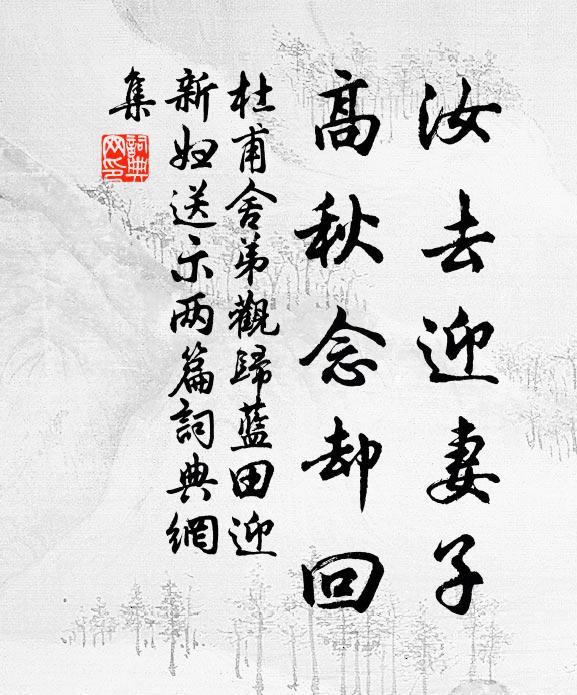 汝去迎妻子
高秋念却回
杜甫舍弟觀歸藍田迎
新妇送示两篇詞典網
集
詞典
网印